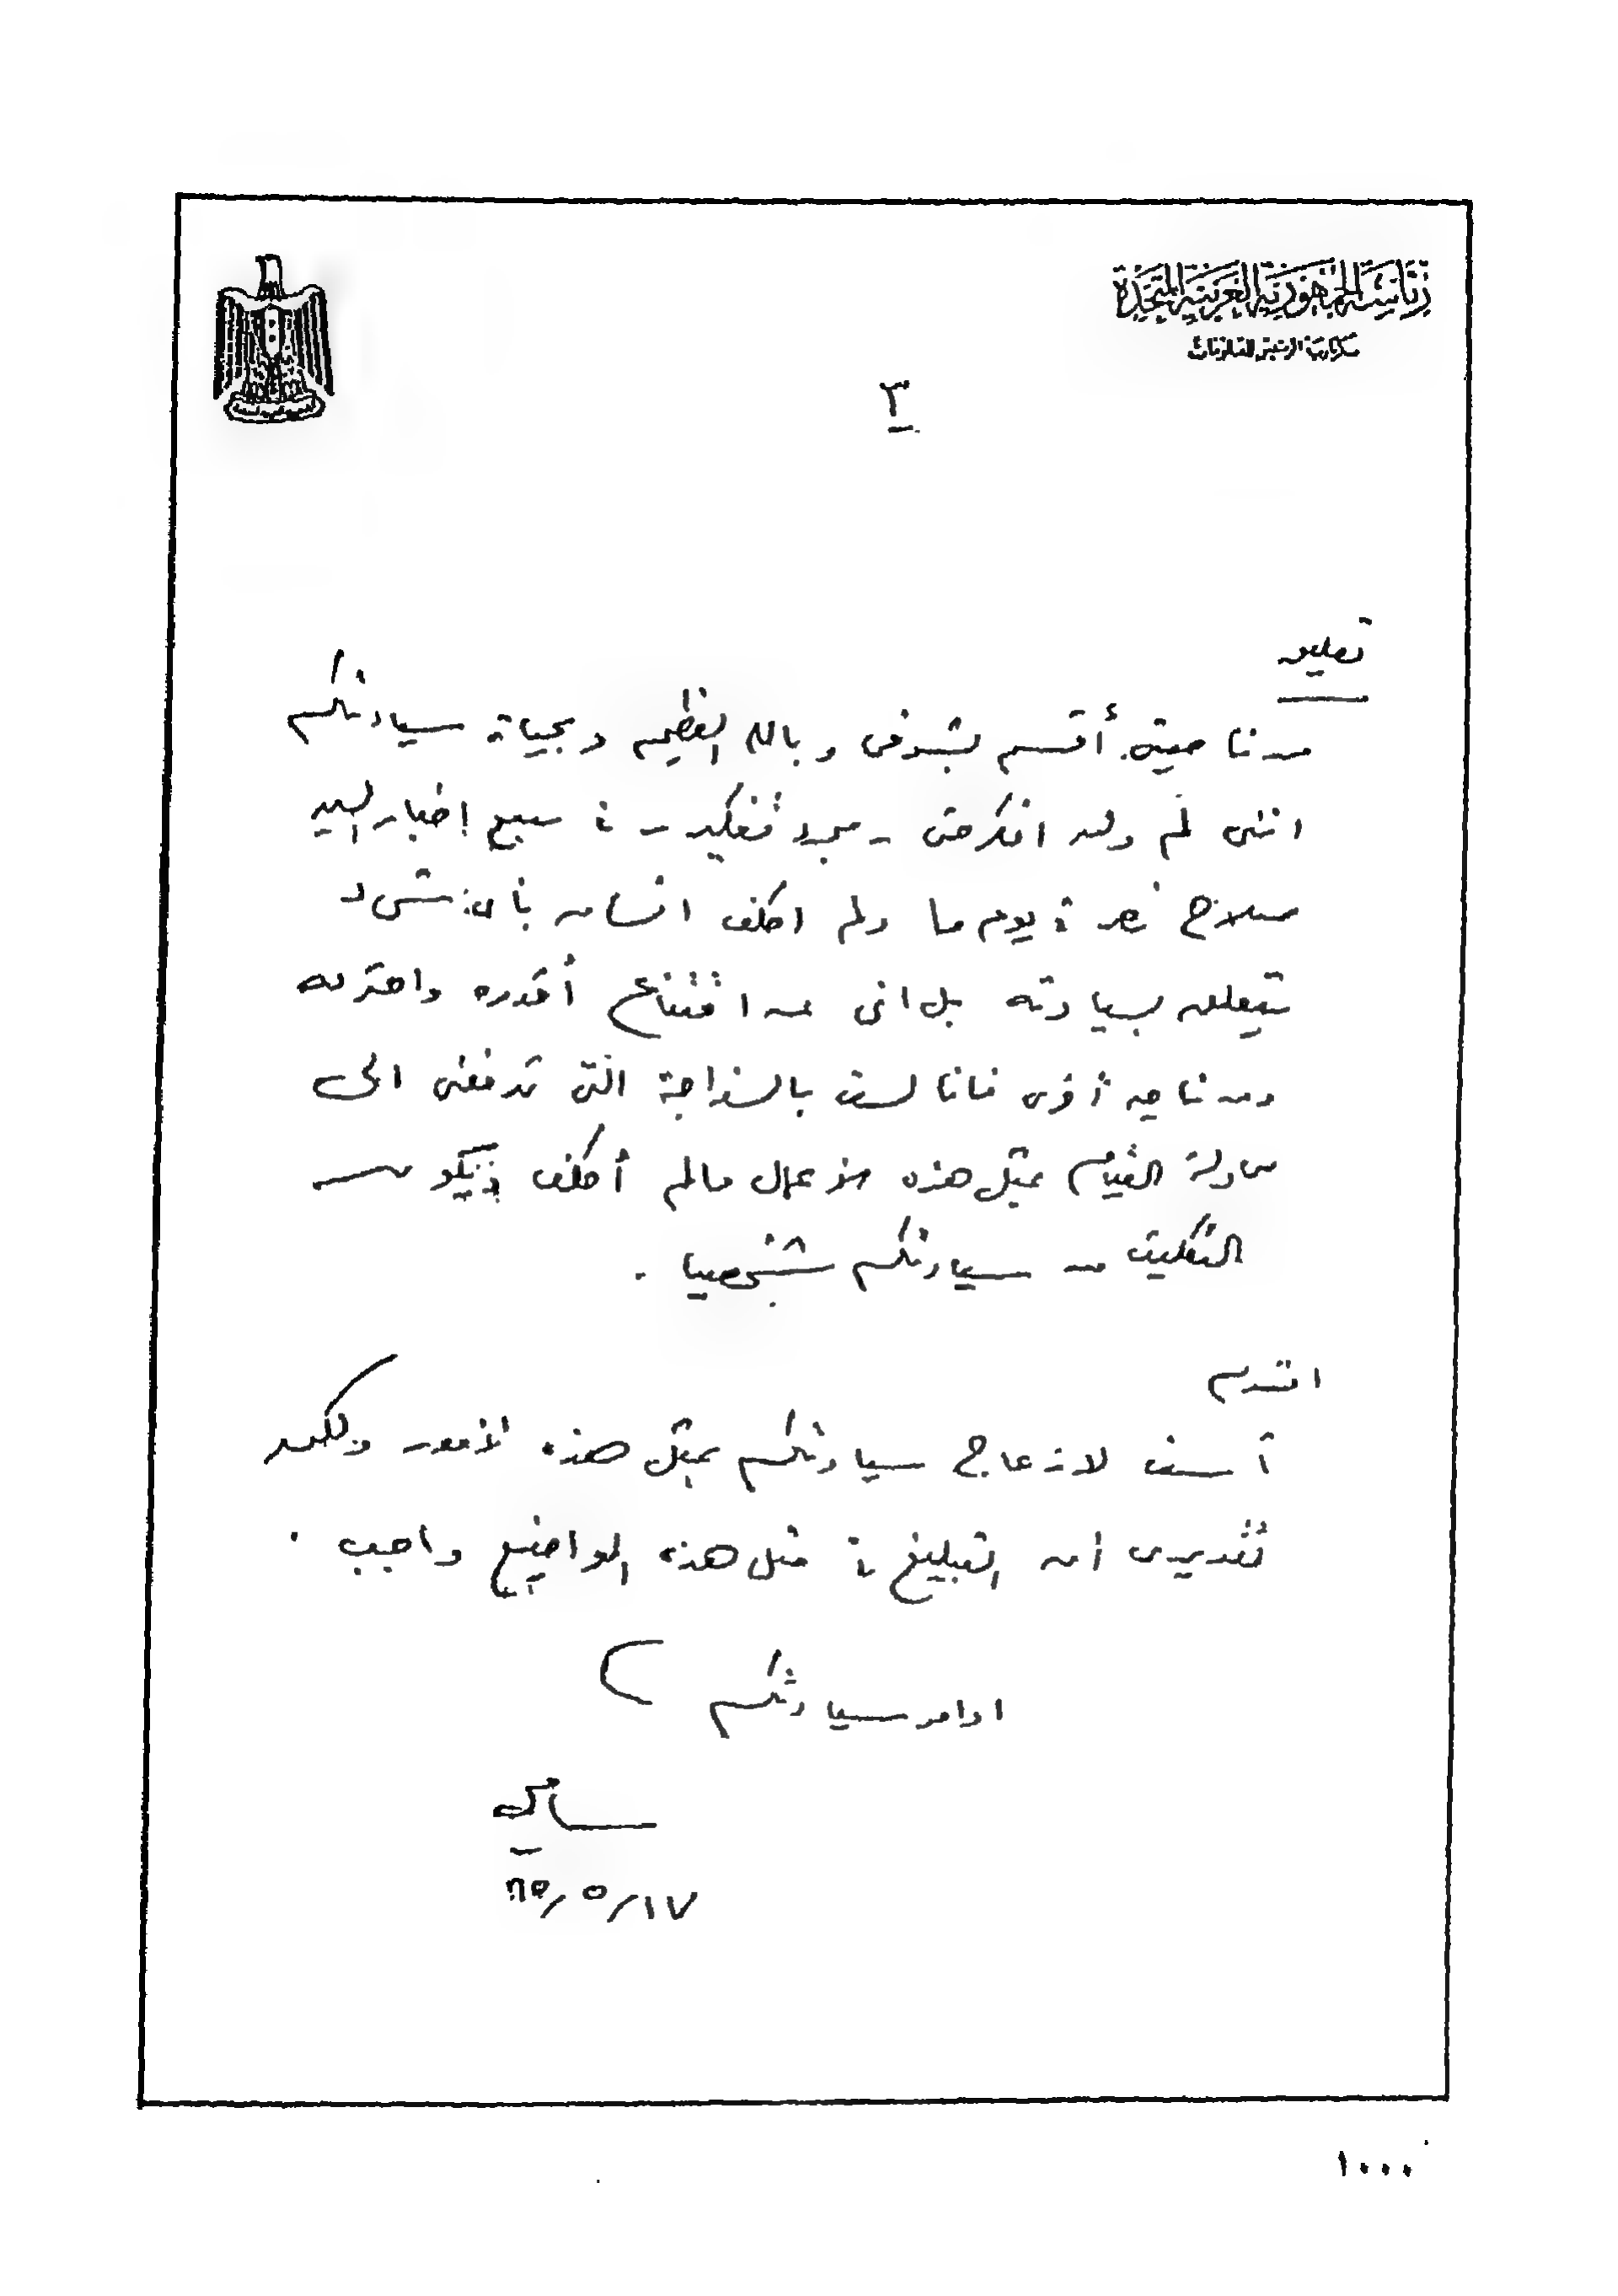 رئاسة الجمهورية العربية المتحدة
سكرتارية الرئيس للمعلومات
٣
تعليق
من ناحيتى. أقسم بشرفى وبالله العظيم وبحياة سيادتكم
اننى لم ولن افكر حتى - مجرد تفكير - فى تتبع إخبار السيد
صلاح نصر فى يوم ما ولم اكلف انسان بأى شىء
يتعلق بسيادته بل انى عن اقتناع أقدره واحترمه
ومن ناحية أخرى فانا لست بالسذاجة التى تدفعنى الى
محاولة القيام بمثل هذه الاعمال مالم أكلف ويكون
التكليف من سيادتكم شخصيا .
افندم
آسف لازعاج سيادتكم بمثل هذه الأمور ولكن
تقديرى أن التبليغ فى مثل هذه المواضيع واجب .
اوامر سيادتكم
سامى
١٧/٥/٦٥
١٠٠٠